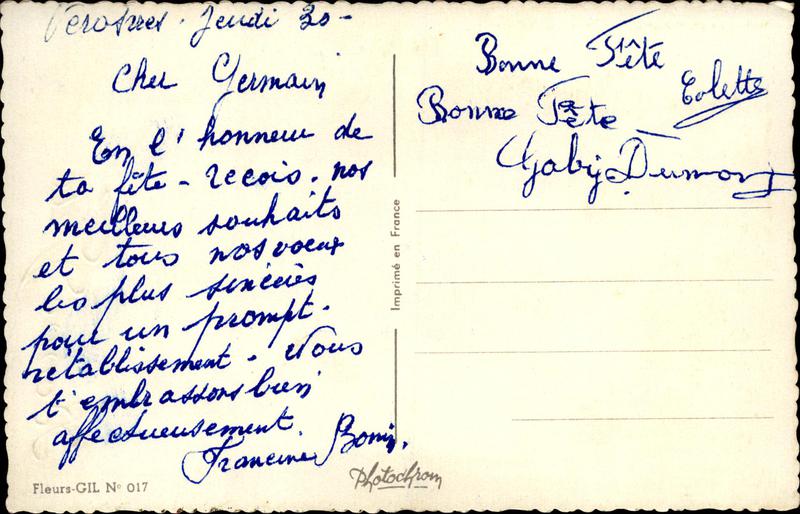 Verosvres. Jeudi 20-
Cher Germain
En l'honneur de
ta fête - recois. nos
meilleurs souhaits
et tous nos voeux
les plus sincères
pour un prompt.
rétablissement. Nous
t'embrassons bien
affectueusement.
Francine Bonin.
Bonne Fête
Colette
Bonne Fête
Gaby Dumont
Imprimé en France
Fleurs-GIL Nº 017
Photochrom